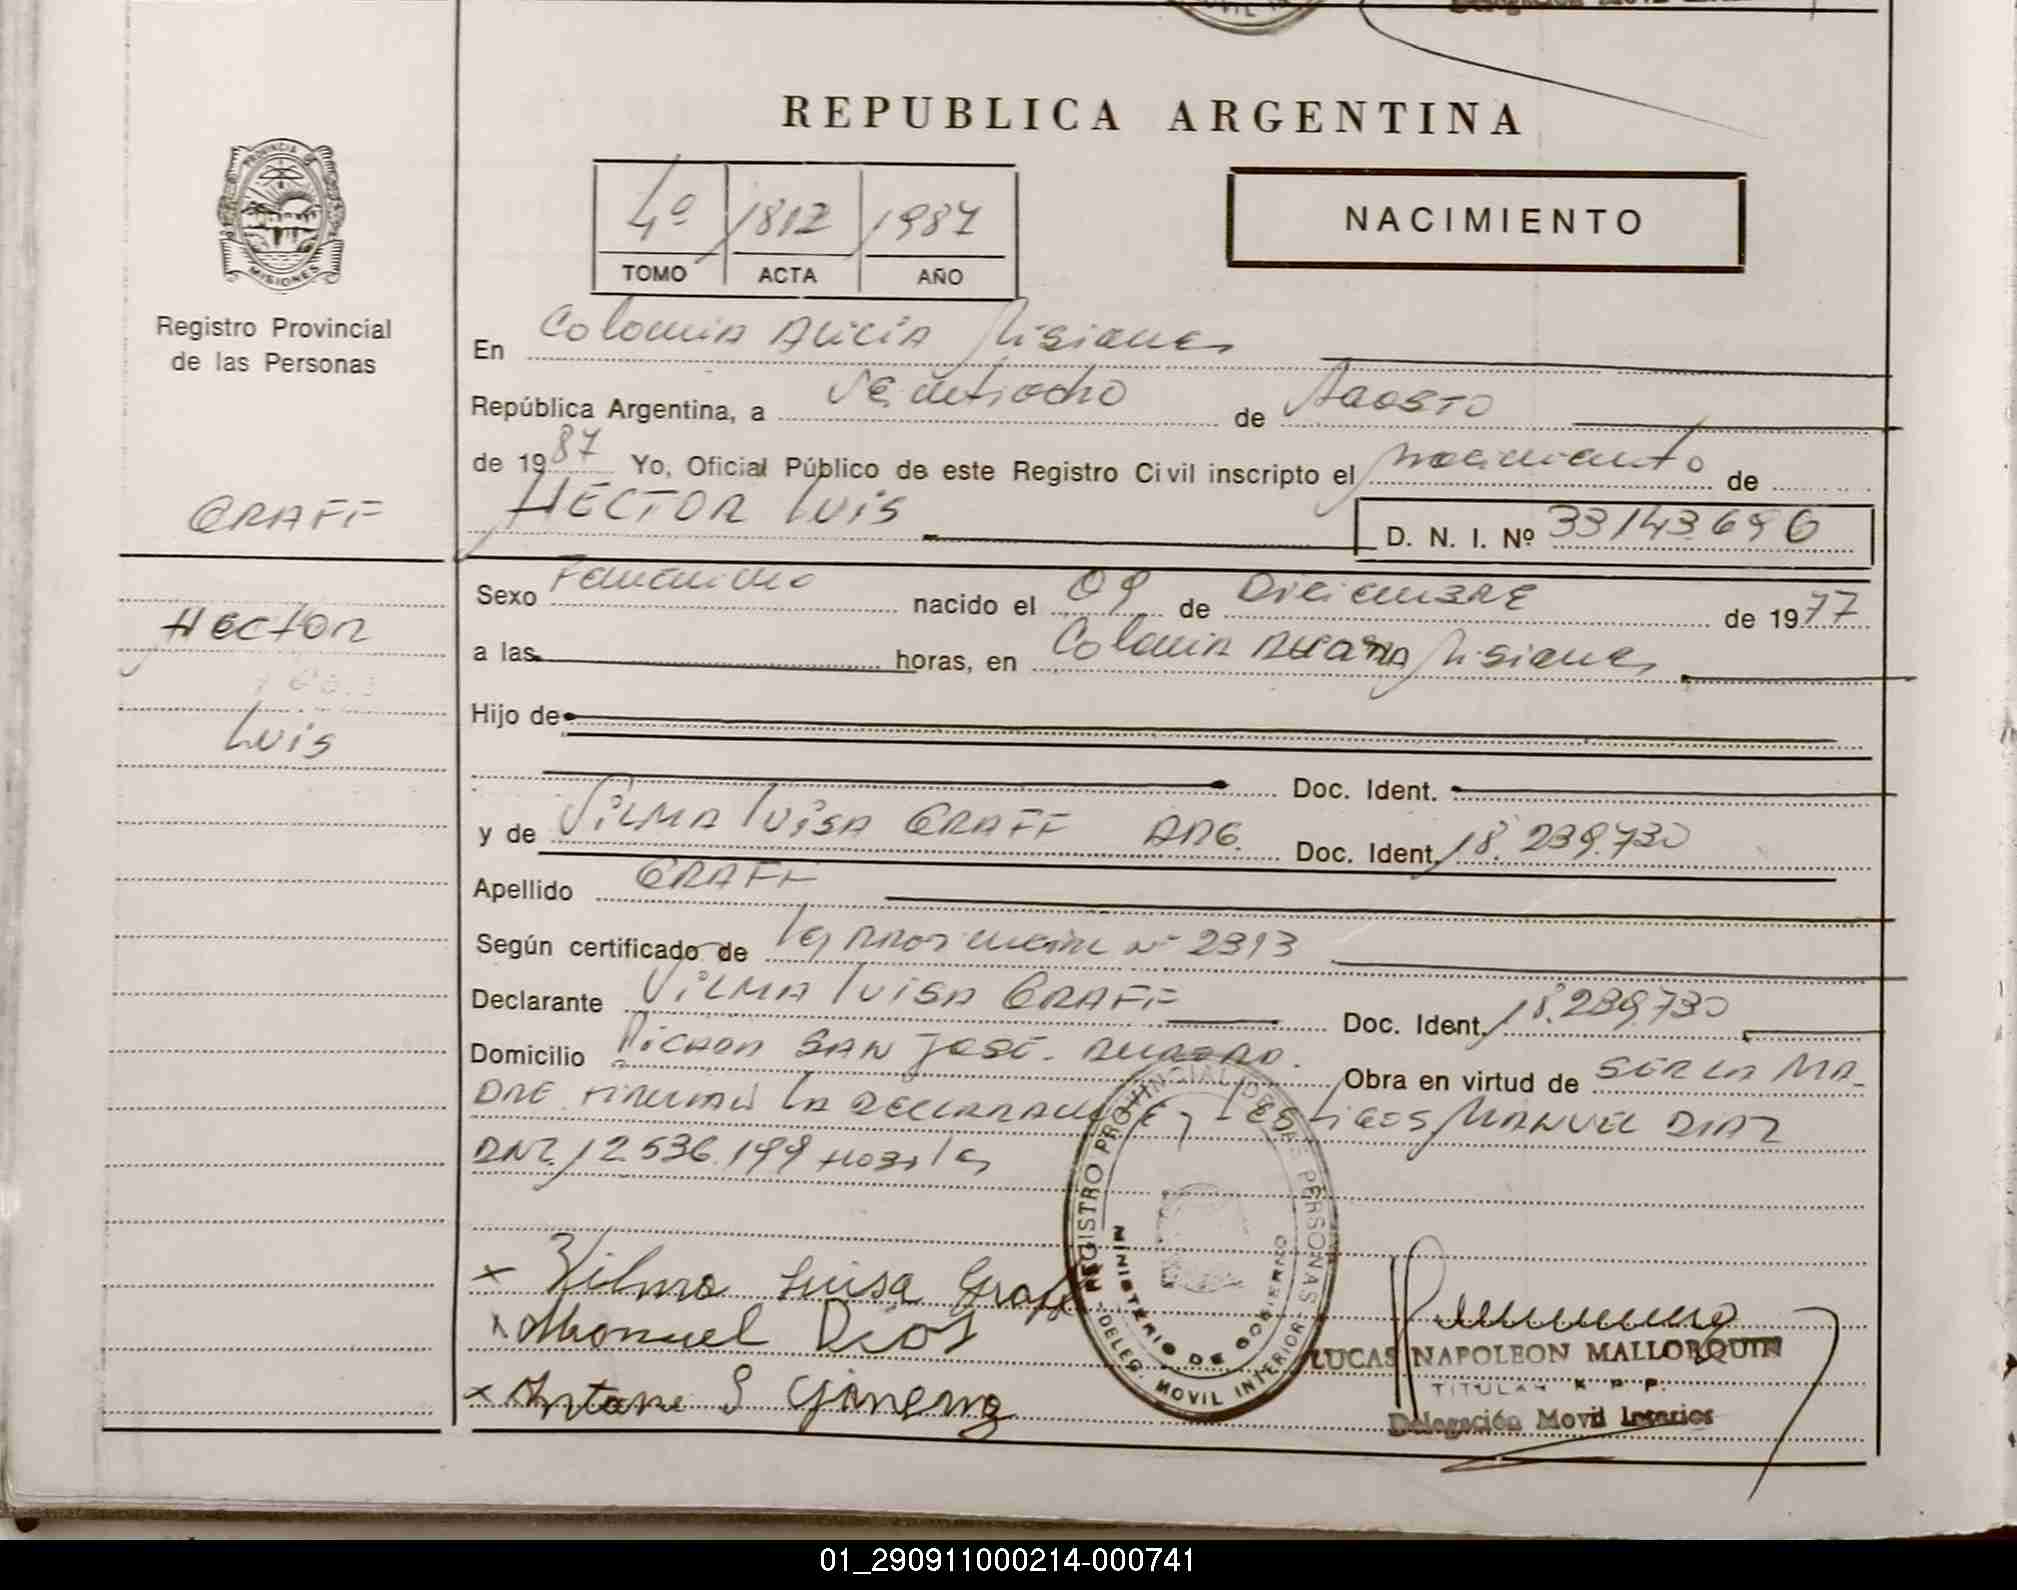 REPUBLICA ARGENTINA
PROVINCIA DE
MISIONES
Registro Provincial
de las Personas
4º 1812 1987
TOMO ACTA AÑO
NACIMIENTO
En Colonia Alicia Misiones
República Argentina, a Veintiocho de Agosto
de 1987 Yo, Oficial Público de este Registro Civil inscripto el nacimiento de
GRAFF
HECTOR LUIS D. N. I. Nº 33143696
Hector
Luis
Sexo Femenino nacido el 09 de Diciembre de 1977
a las horas, en Colonia Misiones
Hijo de
Doc. Ident.
y de VILMA LUISA GRAFF ARG. Doc. Ident. 18.239.730
Apellido GRAFF
Según certificado de Ley Nº 2393
Declarante VILMA LUISA GRAFF Doc. Ident. 18.239.730
Domicilio PICADA SAN JOSE. Obra en virtud de SER LA MA-
DRE FIRMAN LA DECLARANTE y TESTIGOS MANUEL DIAZ
DNI. 12.536.199
REGISTRO PROVINCIAL DE LAS PERSONAS
MINISTERIO DE GOBIERNO
DELEG. MOVIL INTERIOR
x Vilma Luisa Graff
x Manuel Dias
x Antonio S Gimenez
LUCAS NAPOLEON MALLORQUIN
TITULAR R P P.
Delegación Movil Interior
01_290911000214-000741